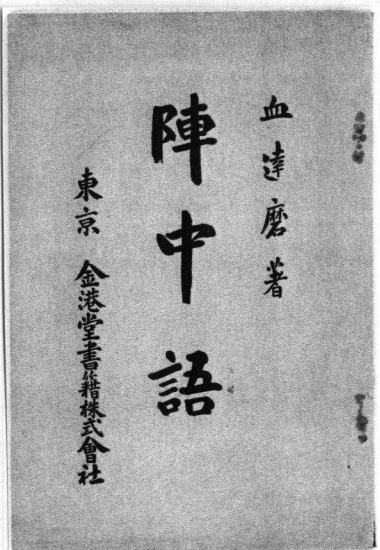 血達磨著
陣中語
東京 金港堂書籍株式會社